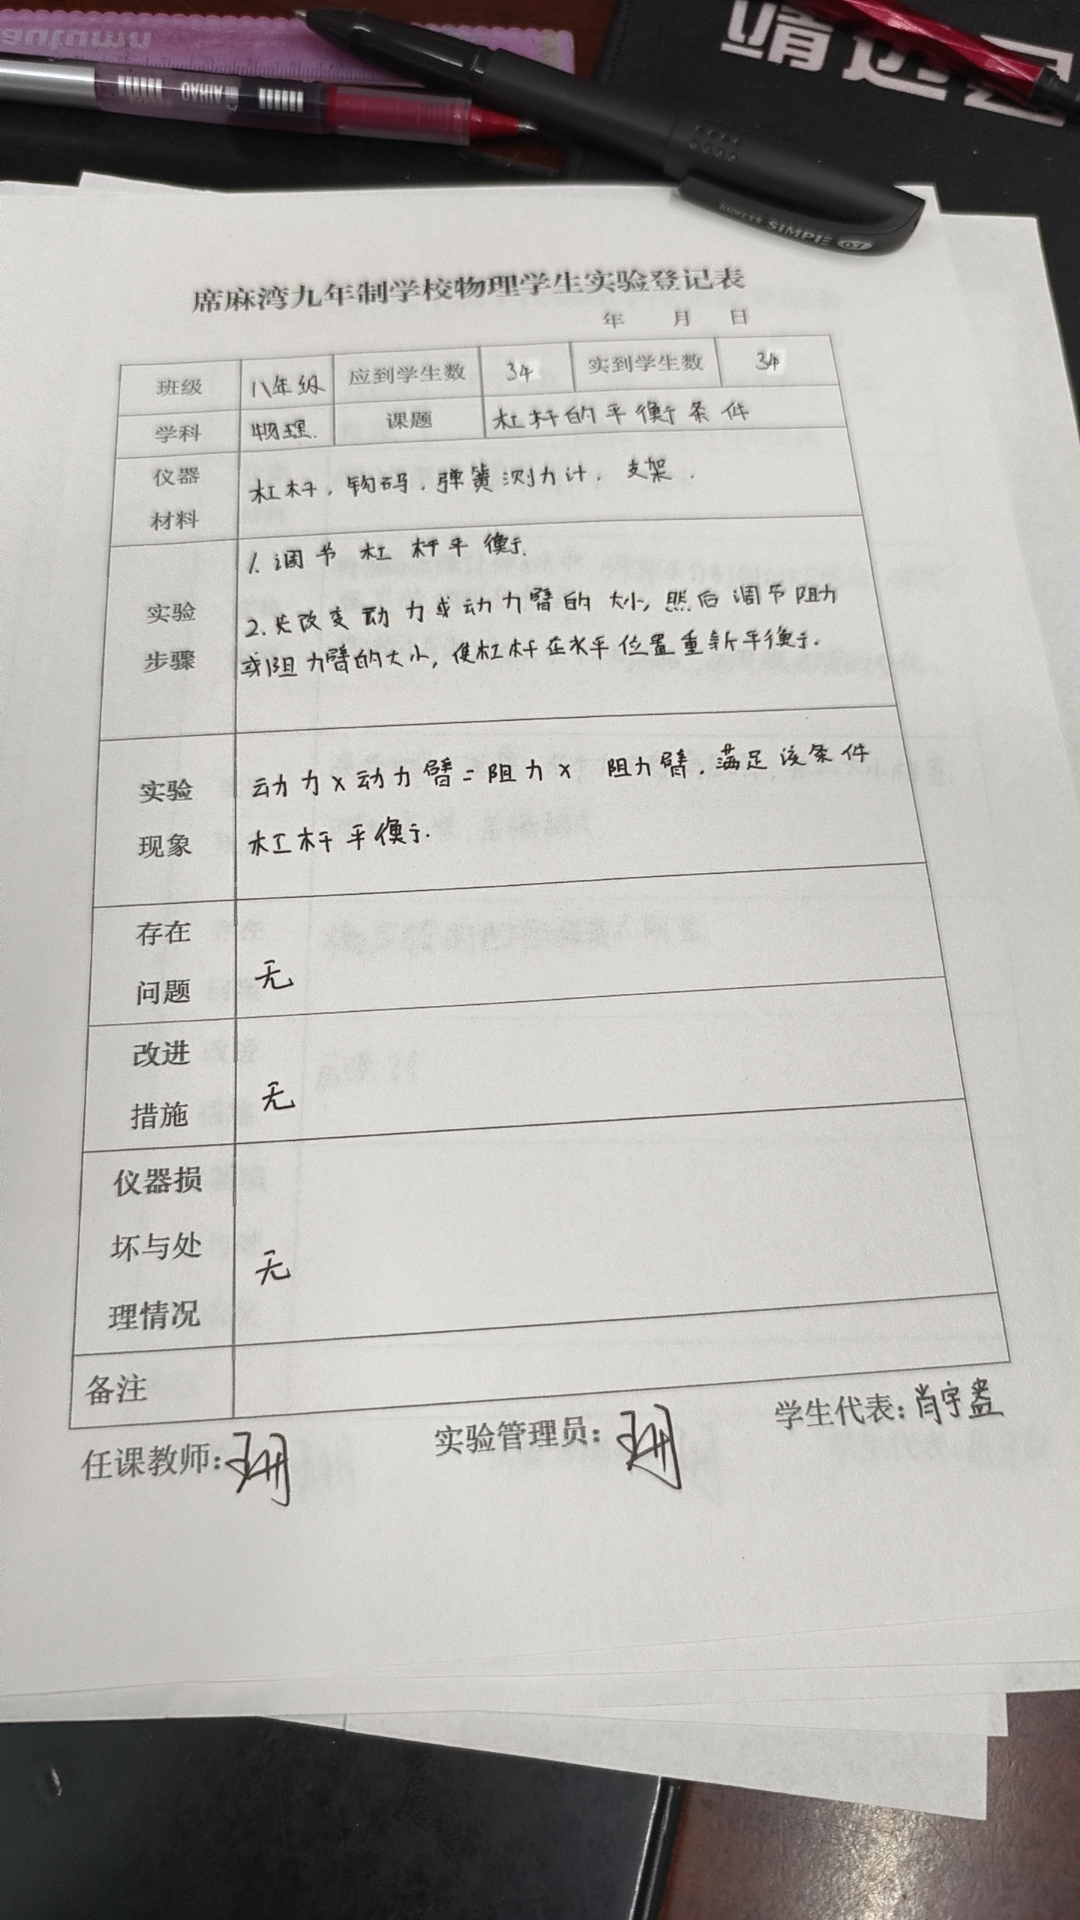 autumn
靖边云
SIMPIE 0.7
席麻湾九年制学校物理学生实验登记表
年 月 日
班级 八年级 应到学生数 34 实到学生数 34
学科 物理. 课题 杠杆的平衡条件
仪器
材料
杠杆,钩码,弹簧测力计,支架.
实验
步骤
1.调节杠杆平衡.
2.先改变动力或动力臂的大小,然后调节阻力
或阻力臂的大小,使杠杆在水平位置重新平衡.
实验
现象
动力×动力臂=阻力×阻力臂.满足该条件
杠杆平衡.
存在
问题
无
改进
措施
无
仪器损
坏与处
理情况
无
备注
任课教师: 实验管理员: 学生代表:肖宇